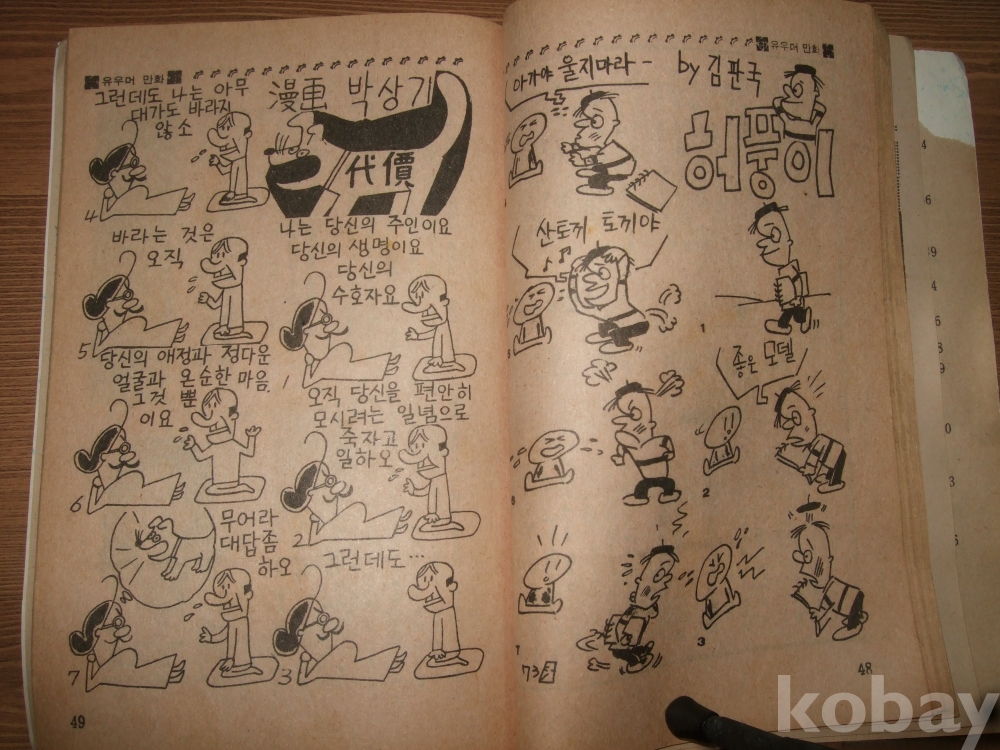 유우머 만화
by 김판국
허풍이
1
좋은 모델
2
3
아가야 울지마라 -
산토끼 토끼야
6
7
73
48
유우머 만화
漫画 박상기
代價
나는 당신의 주인이요
당신의 생명이요
당신의
수호자요
1
오직 당신을 편안히
모시려는 일념으로
죽자고
일하오
2
그런데도...
3
그런데도 나는 아무
대가도 바라지
않소
4
바라는 것은
오직
5
당신의 애정과 정다운
얼굴과 온순한 마음
그것 뿐
이요
6
무어라
대답좀
하오
7
49
kobay